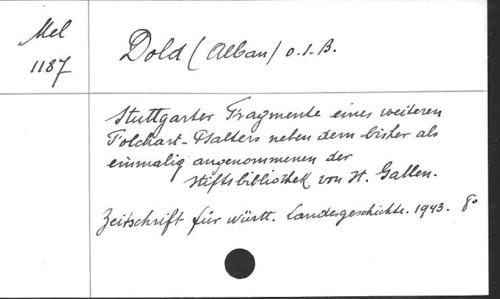 Mel
1187
Dold (Alban) o.s.B.
Stuttgarter Fragmente eines weiteren
Folchart-Psalters neben dem bisher als
einmalig angenommenen der
Stiftsbibliothek von St. Gallen.
Zeitschrift für württ. Landesgeschichte. 1943. 8°